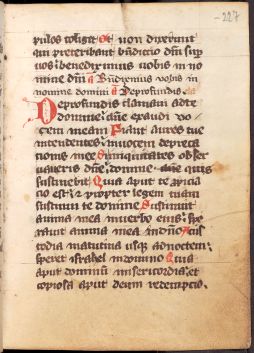 227
pulos colligit Et non dixerunt
qui preteribant bn̄dictio dn̄i sup
vos benediximus vobis in no
mine dn̄i a Bn̄diximus vobis in
nomine domini a Deprofundis cl
Deprofundis clamavi ad te
domine dn̄e exaudi vo
cem meam Fiant aures tue
intendentes in vocem depreca
tionis mee Si iniquitates obser
vaveris dn̄e domine quis
sustinebit Quia aput te ꝓpicia
cio est et propter legem tuam
sustinui te domine Sustinuit
anima mea in verbo eius spe
ravit anima mea in dn̄o A cus
todia matutina usqꝫ ad noctem
speret israhel in domino Quia
aput dominū misericordia et
copiosa aput deum redempcio